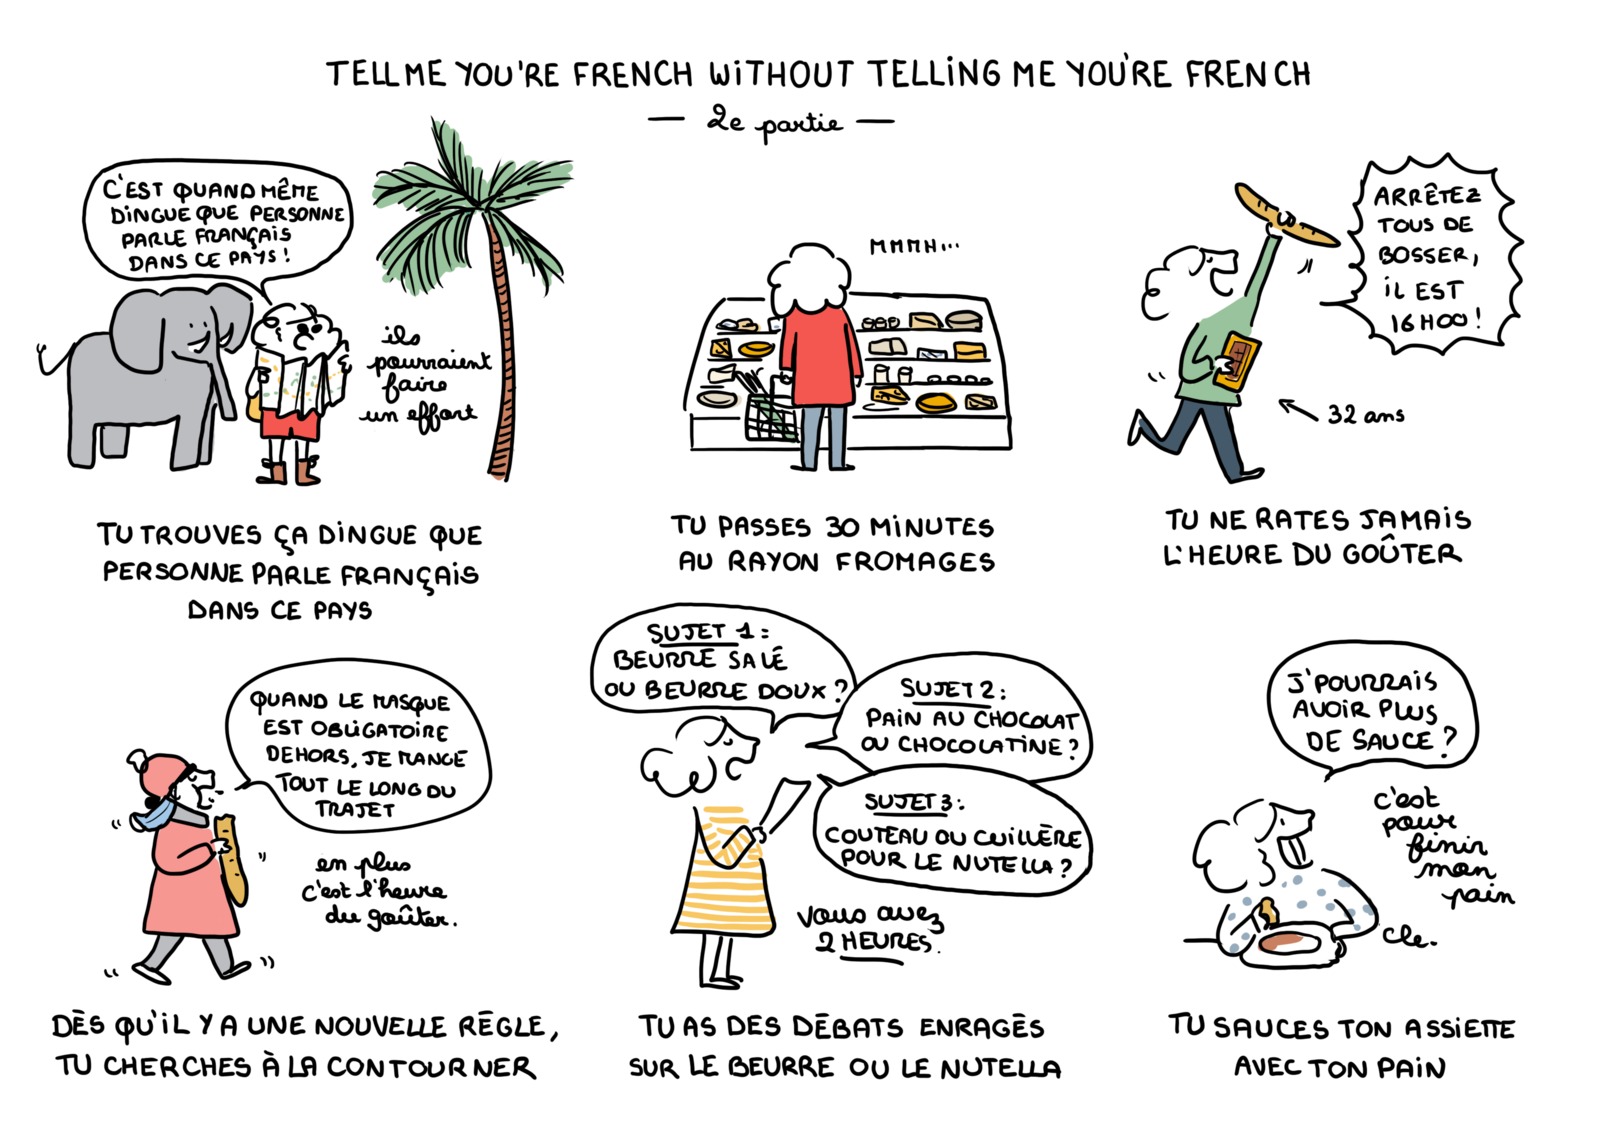 TELL ME YOU'RE FRENCH WITHOUT TELLING ME YOU'RE FRENCH
— 2e partie —
C'EST QUAND MÊME
DINGUE QUE PERSONNE
PARLE FRANÇAIS
DANS CE PAYS !
ils
pourraient
faire
un effort
TU TROUVES ÇA DINGUE QUE
PERSONNE PARLE FRANÇAIS
DANS CE PAYS
MMMH...
TU PASSES 30 MINUTES
AU RAYON FROMAGES
ARRÊTEZ
TOUS DE
BOSSER,
IL EST
16H00 !
32 ans
TU NE RATES JAMAIS
L'HEURE DU GOÛTER
QUAND LE MASQUE
EST OBLIGATOIRE
DEHORS, JE MANGE
TOUT LE LONG DU
TRAJET
en plus
c'est l'heure
du goûter.
DÈS QU'IL Y A UNE NOUVELLE RÈGLE,
TU CHERCHES À LA CONTOURNER
SUJET 1 :
BEURRE SALÉ
OU BEURRE DOUX ?
SUJET 2 :
PAIN AU CHOCOLAT
OU CHOCOLATINE ?
SUJET 3 :
COUTEAU OU CUILLÈRE
POUR LE NUTELLA ?
vous avez
2 HEURES.
TU AS DES DÉBATS ENRAGÉS
SUR LE BEURRE OU LE NUTELLA
J'POURRAIS
AVOIR PLUS
DE SAUCE ?
c'est
pour
finir
mon
pain
Cle.
TU SAUCES TON ASSIETTE
AVEC TON PAIN